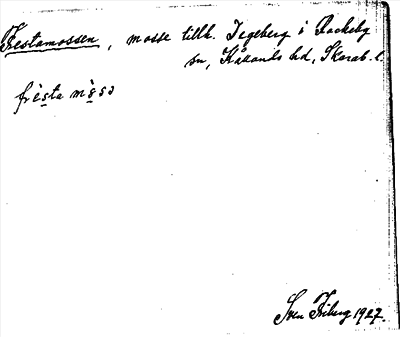 Frestamossen, mosse tillh. Degeberg i Rackeby
sn, Kållands hd, Skarab. l.
frèsta mòsɔ
Sven Friberg 1927.